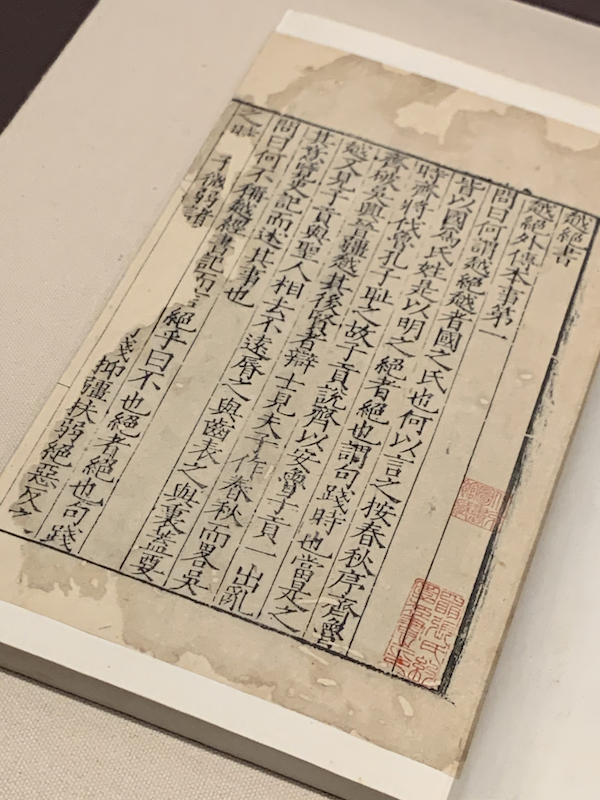 越絕書
越絕外傳本事第一
問曰何謂越絕越者國之氏也何以言之按春秋序齊魯
皆以國爲氏姓是以明之絕者絕也謂句踐時也當是之
時齊將伐魯孔子耻之故子貢說齊以安魯子貢一出亂
齊破吳興晉彊越其後賢者辯士見夫子作春秋而畧吳
越又見子貢與聖人相去不遠脣之與齒表之與裏蓋要
其意覽史記而述其事也
問曰何不稱越經書記而絕乎曰不也絕者絕也句踐
之時子微弱踐抑彊扶弱絕惡反之